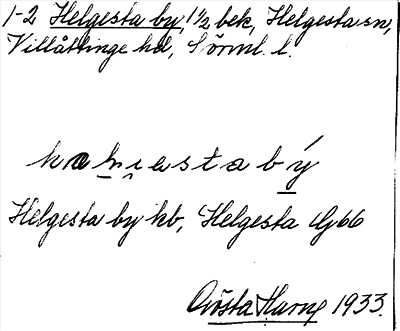 1-2 Helgesta by, 1 1/2 bek, Helgesta sn,
Villåttinge hd, Sörml. l.
Helgesta by kb, Helgesta Ug 66
Gösta Harne 1933.